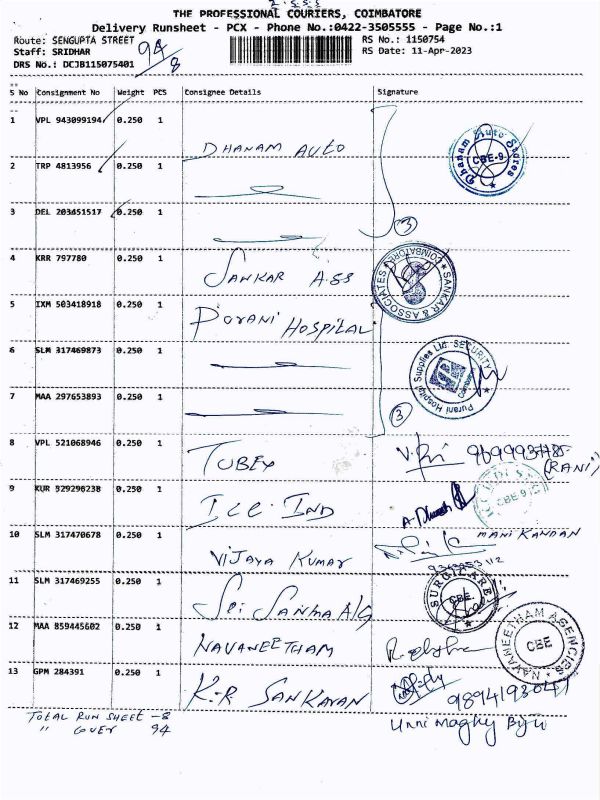 THE PROFESSIONAL COURIERS, COIMBATORE
Delivery Runsheet - PCX - Phone No.:0422-3505555 - Page No.:1
Route: SENGUPTA STREET
RS No.: 1150754
Staff: SRIDHAR
RS Date: 11-Apr-2023
DRS No.: DCJB115075401
94/8
S No Consignment No Weight PCS Consignee Details Signature
1 VPL 943099194 0.250 1 DHANAM AUTO
Dhanam Auto Stores CBE-9
2 TRP 4813956 0.250 1
3 DEL 203451517 0.250 1
(3)
4 KRR 797780 0.250 1 SANKAR ASS
SANKAR & ASSOCIATES COIMBATORE
5 IXM 503418918 0.250 1 PURANI HOSPITAL
6 SLM 317469873 0.250 1
Purani Hospital Supplies Ltd. SECURITY
7 MAA 297653893 0.250 1
(3)
8 VPL 521068946 0.250 1 TUBEX
(RANI)
9 KUR 329290238 0.250 1 ICC IND
CBE 9
10 SLM 317470678 0.250 1 VIJAYA KUMAR
MANI KANDAN
11 SLM 317469255 0.250 1 Sri
SURGICARE CBE.
12 MAA 859445602 0.250 1 NAVANEETHAM
NAVANEETHAM AGENCIES CBE
13 GPM 284391 0.250 1 K.R SANKARAN
TOTAL RUN SHEET - 8
" COVER 94
Unni